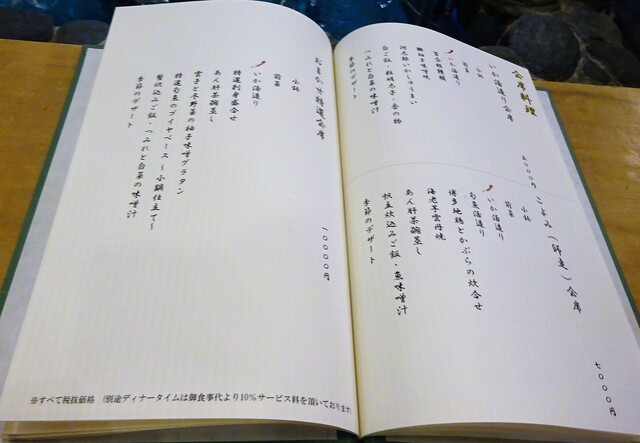 会席料理
いか活造り会席
小鉢
前菜
いか活造り
河太郎いかしゅうまい
つみれと白菜の味噌汁
季節のデザート
こよみ(師走)会席
小鉢
前菜
いか活造り
旬魚活造り
博多地鶏とかぶらの炊合せ
海老芋雲丹焼
あん肝茶碗蒸し
帆立炊込みご飯・魚味噌汁
季節のデザート
七〇〇〇円
特選会席
小鉢
前菜
いか活造り
特選刺身盛合せ
あん肝茶碗蒸し
雲子と冬野菜の柚子味噌グラタン
特選旬魚のブイヤベース〜小鍋仕立て〜
蟹炊込みご飯・つみれと白菜の味噌汁
季節のデザート
一〇〇〇〇円
※すべて税抜価格 (別途ディナータイムは御食事代より10%サービス料を頂いております)